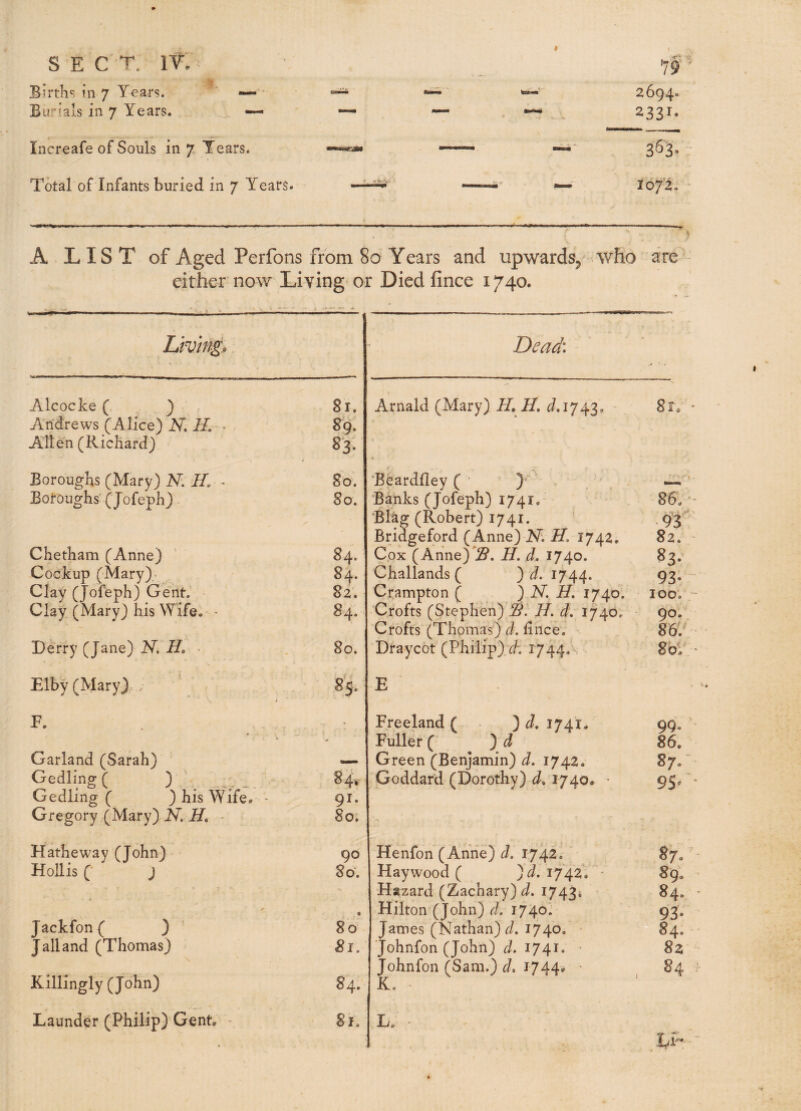 SECT. IV. 79
Births in 7 Years. — — — — 2694.
Burials in 7 Years. — — — — 2331.
Increase of Souls in 7 Years. — — — 363.
Total of Infants buried in 7 Years. — — — 1072.
A LIST of Aged Persons from 80 Years and upwards, who are
either now Living or Died since 1740.
Living.
Alcocke ( ) 81.
Andrews (Alice) N. H. 89.
Allen (Richard) 83.
Boroughs (Mary) N. H. 80.
Boroughs (Joseph) 80.
Chetham (Anne) 84.
Cockup (Mary) 84.
Clay (Joseph) Gent. 82.
Clay (Mary) his Wife. 84.
Derry (Jane) N. H. 80.
Elby (Mary) 85.
F.
Garland (Sarah) —
Gedling ( ) 84.
Gedling ( ) his Wife. 91.
Gregory (Mary) N. H. 80.
Hatheway (John) 90
Hollis ( ) 80.
Jackson ( ) 80
Jalland (Thomas) 81.
Killingly (John) 84.
Launder (Philip) Gent. 81.
Dead.
Arnald (Mary) H. H. d. 1743. 81.
Beardsley ( ) —
Banks (Joseph) 1741. 86.
Blag (Robert) 1741. 93
Bridgeford (Anne) N. H. 1742. 82.
Cox (Anne) B. H. d. 1740. 83.
Challands ( ) d. 1744. 93.
Crampton ( ) N. H. 1740. 100.
Crofts (Stephen) B. H. d. 1740. 90.
Crofts (Thomas) d. since. 86.
Draycot (Philip) d. 1744. 80.
E
Freeland ( ) d. 1741. 99.
Fuller ( ) d 86.
Green (Benjamin) d. 1742. 87.
Goddard (Dorothy) d. 1740. 95.
Henson (Anne) d. 1742. 87.
Haywood ( ) d. 1742. 89.
Hazard (Zachary) d. 1743. 84.
Hilton (John) d. 1740. 93.
James (Nathan) d. 1740. 84.
Johnson (John) d. 1741. 82
Johnson (Sam.) d. 1744. 84
K.
L.